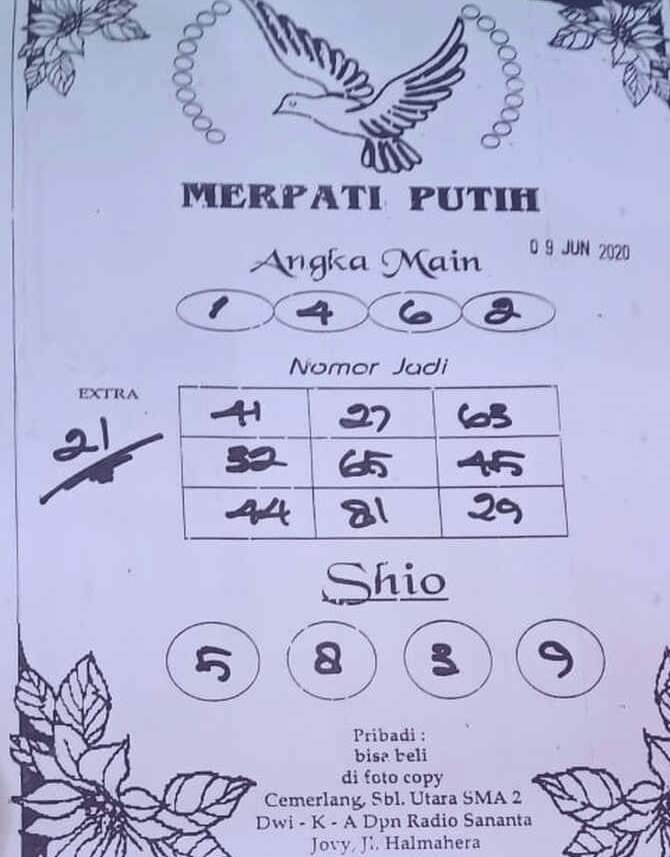 MERPATI PUTIH
09 JUN 2020
Angka Main
1 4 6 2
Nomor Jadi
EXTRA
21
41 27 63
32 65 45
44 81 29
Shio
5 8 3 9
Pribadi :
bisa beli
di foto copy
Cemerlang, Sbl. Utara SMA 2
Dwi - K - A Dpn Radio Sananta
Jovy, Jl. Halmahera